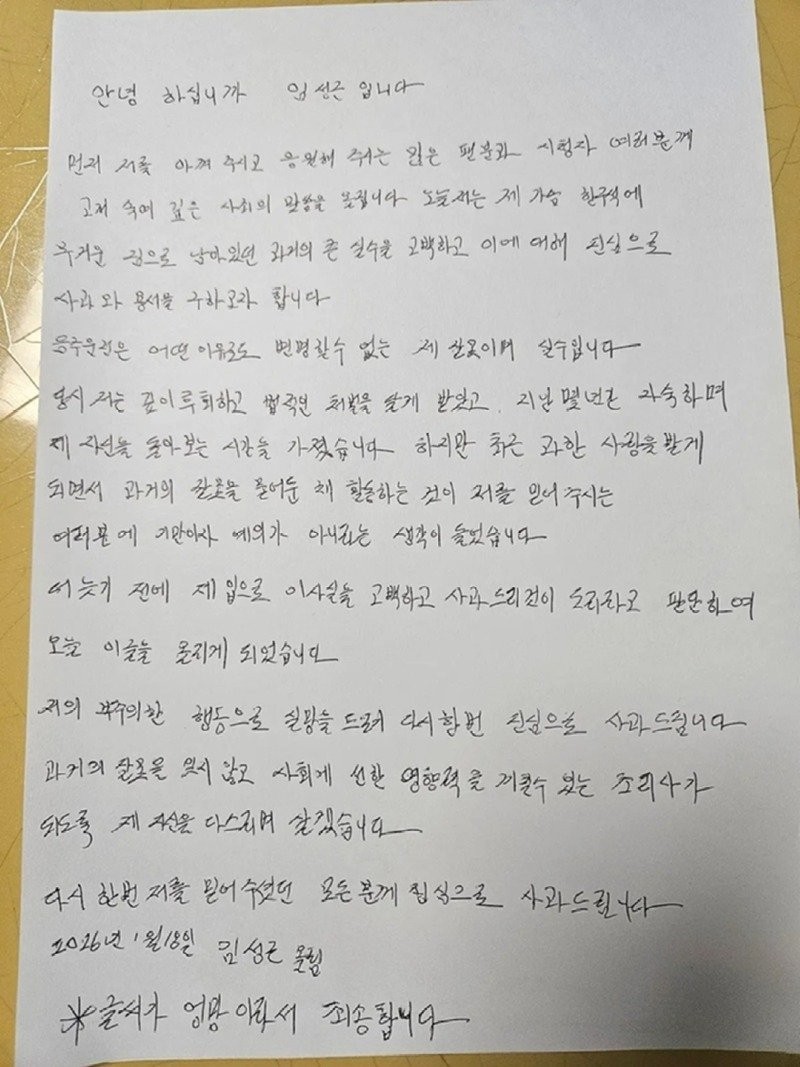 안녕 하십니까 임성근 입니다
먼저 저를 아껴 주시고 응원해 주시는 많은 팬분과 시청자 여러분께
고개 숙여 깊은 사죄의 말씀을 올립니다 오늘 저는 제 가슴 한구석에
무거운 짐으로 남아있던 과거의 큰 실수를 고백하고 이에 대해 진심으로
사과와 용서를 구하고자 합니다
음주운전은 어떤 이유로도 변명할수 없는 제 잘못이며 실수입니다
당시 저는 깊이 후회하고 법적인 처벌을 달게 받았고, 지난 몇년간 자숙하며
제 자신을 돌아보는 시간을 가졌습니다 하지만 최근 과한 사랑을 받게
되면서 과거의 잘못을 묻어둔 채 활동하는 것이 저를 믿어 주시는
여러분에 기만이자 예의가 아니라는 생각이 들었습니다
더 늦기 전에 제 입으로 이사실을 고백하고 사과드리것이 도리라고 판단하여
오늘 이글을 올리게 되었습니다
저의 부주의한 행동으로 실망을 드려 다시한번 진심으로 사과드립니다
과거의 잘못을 잊지 않고 사회게 선한 영향력을 끼칠수 있는 조리사가
되도록 제 자신을 다스리며 살겠습니다
다시 한번 저를 믿어 주셨던 모든 분께 진심으로 사과드립니다
2026년 1월 18일 임성근 올림
※글씨가 엉망이라서 죄송합니다